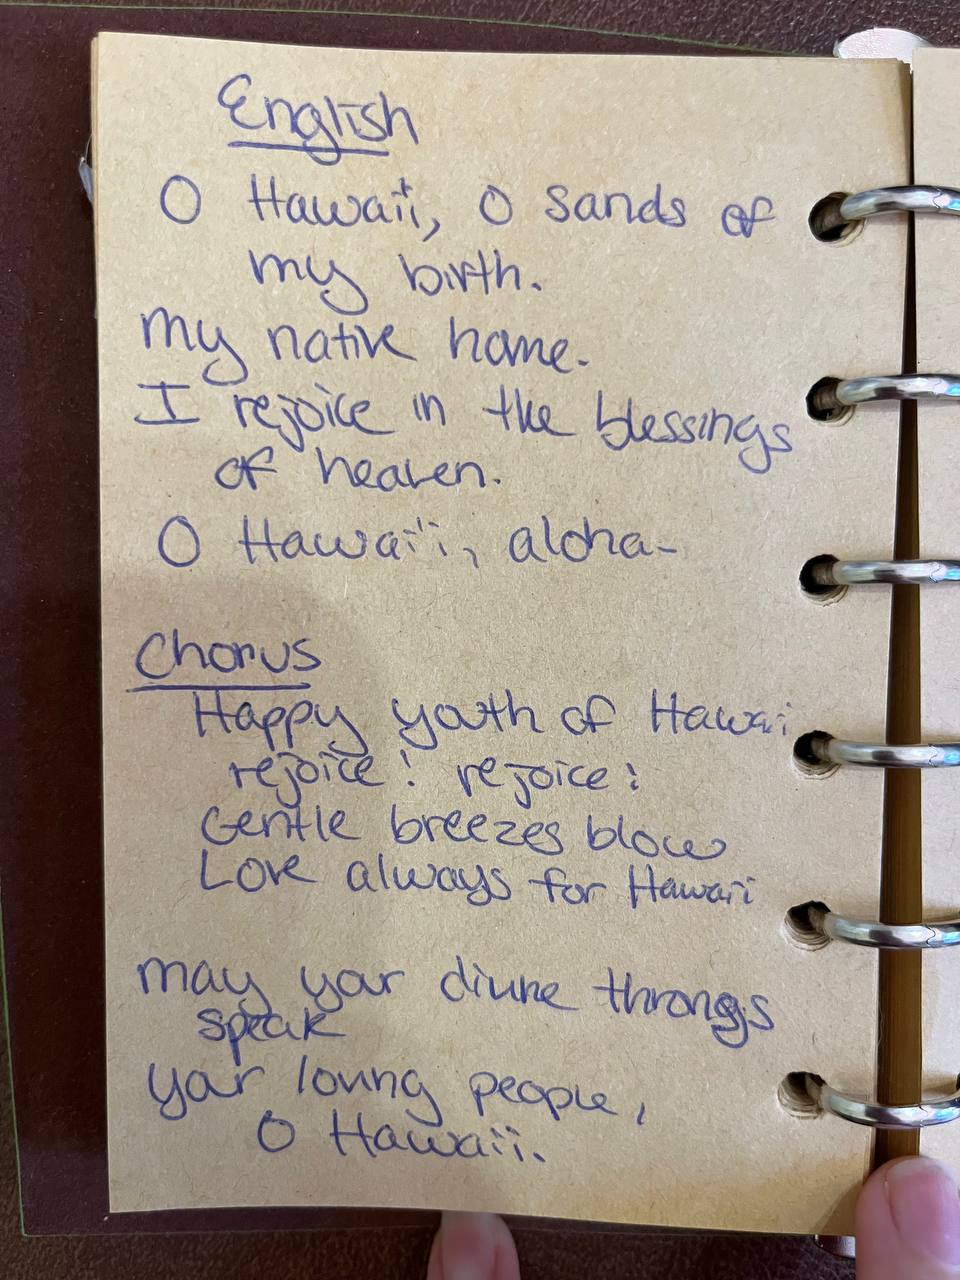 English
O Hawai'i, O sands of
my birth.
My native home.
I rejoice in the blessings
of heaven.
O Hawai'i, aloha-
Chorus
Happy youth of Hawai'i
rejoice! rejoice!
Gentle breezes blow
Love always for Hawai'i
May your divine throngs
speak
your loving people,
O Hawai'i.